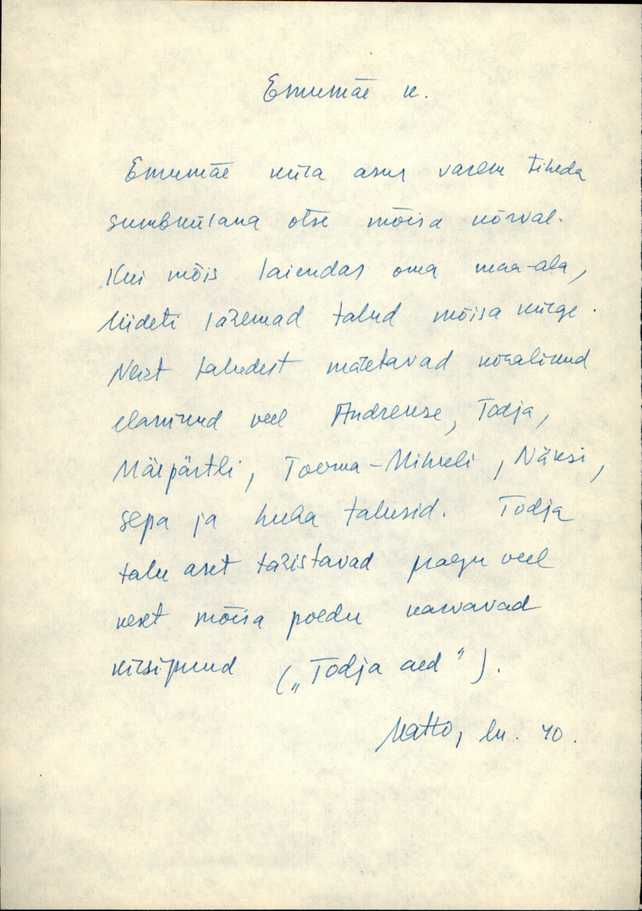 Emumäe k.
Emumäe küla asus varem tiheda
sumbkülana otse mõisa kõrval.
Kui mõis laiendas oma maa-ala,
liideti lähemad talud mõisa külge.
Neist taludest mäletavad kohalikud
elanikud veel Andrekse, Todja,
Märpärtli, Tooma-Mihkli, Näksi,
Sepa ja Luha talusid. Todja
talu aset tähistavad praegu veel
keset mõisa põldu kasvavad
kirsipuud („Todja aed").
Matto, lk. 40.